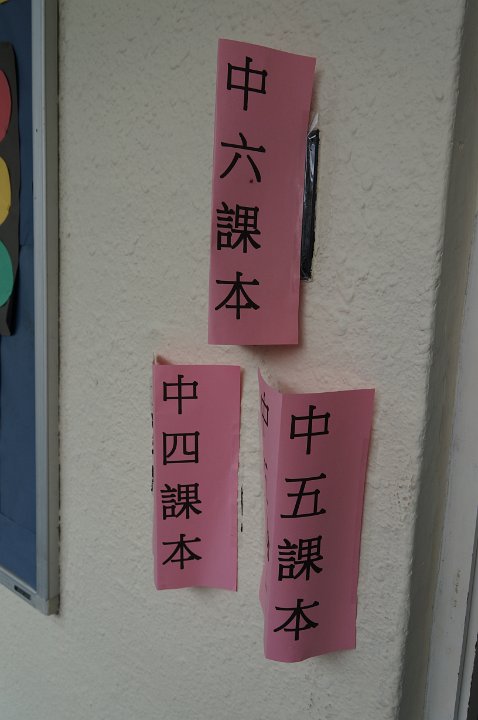 中六課本
中四課本
中五課本